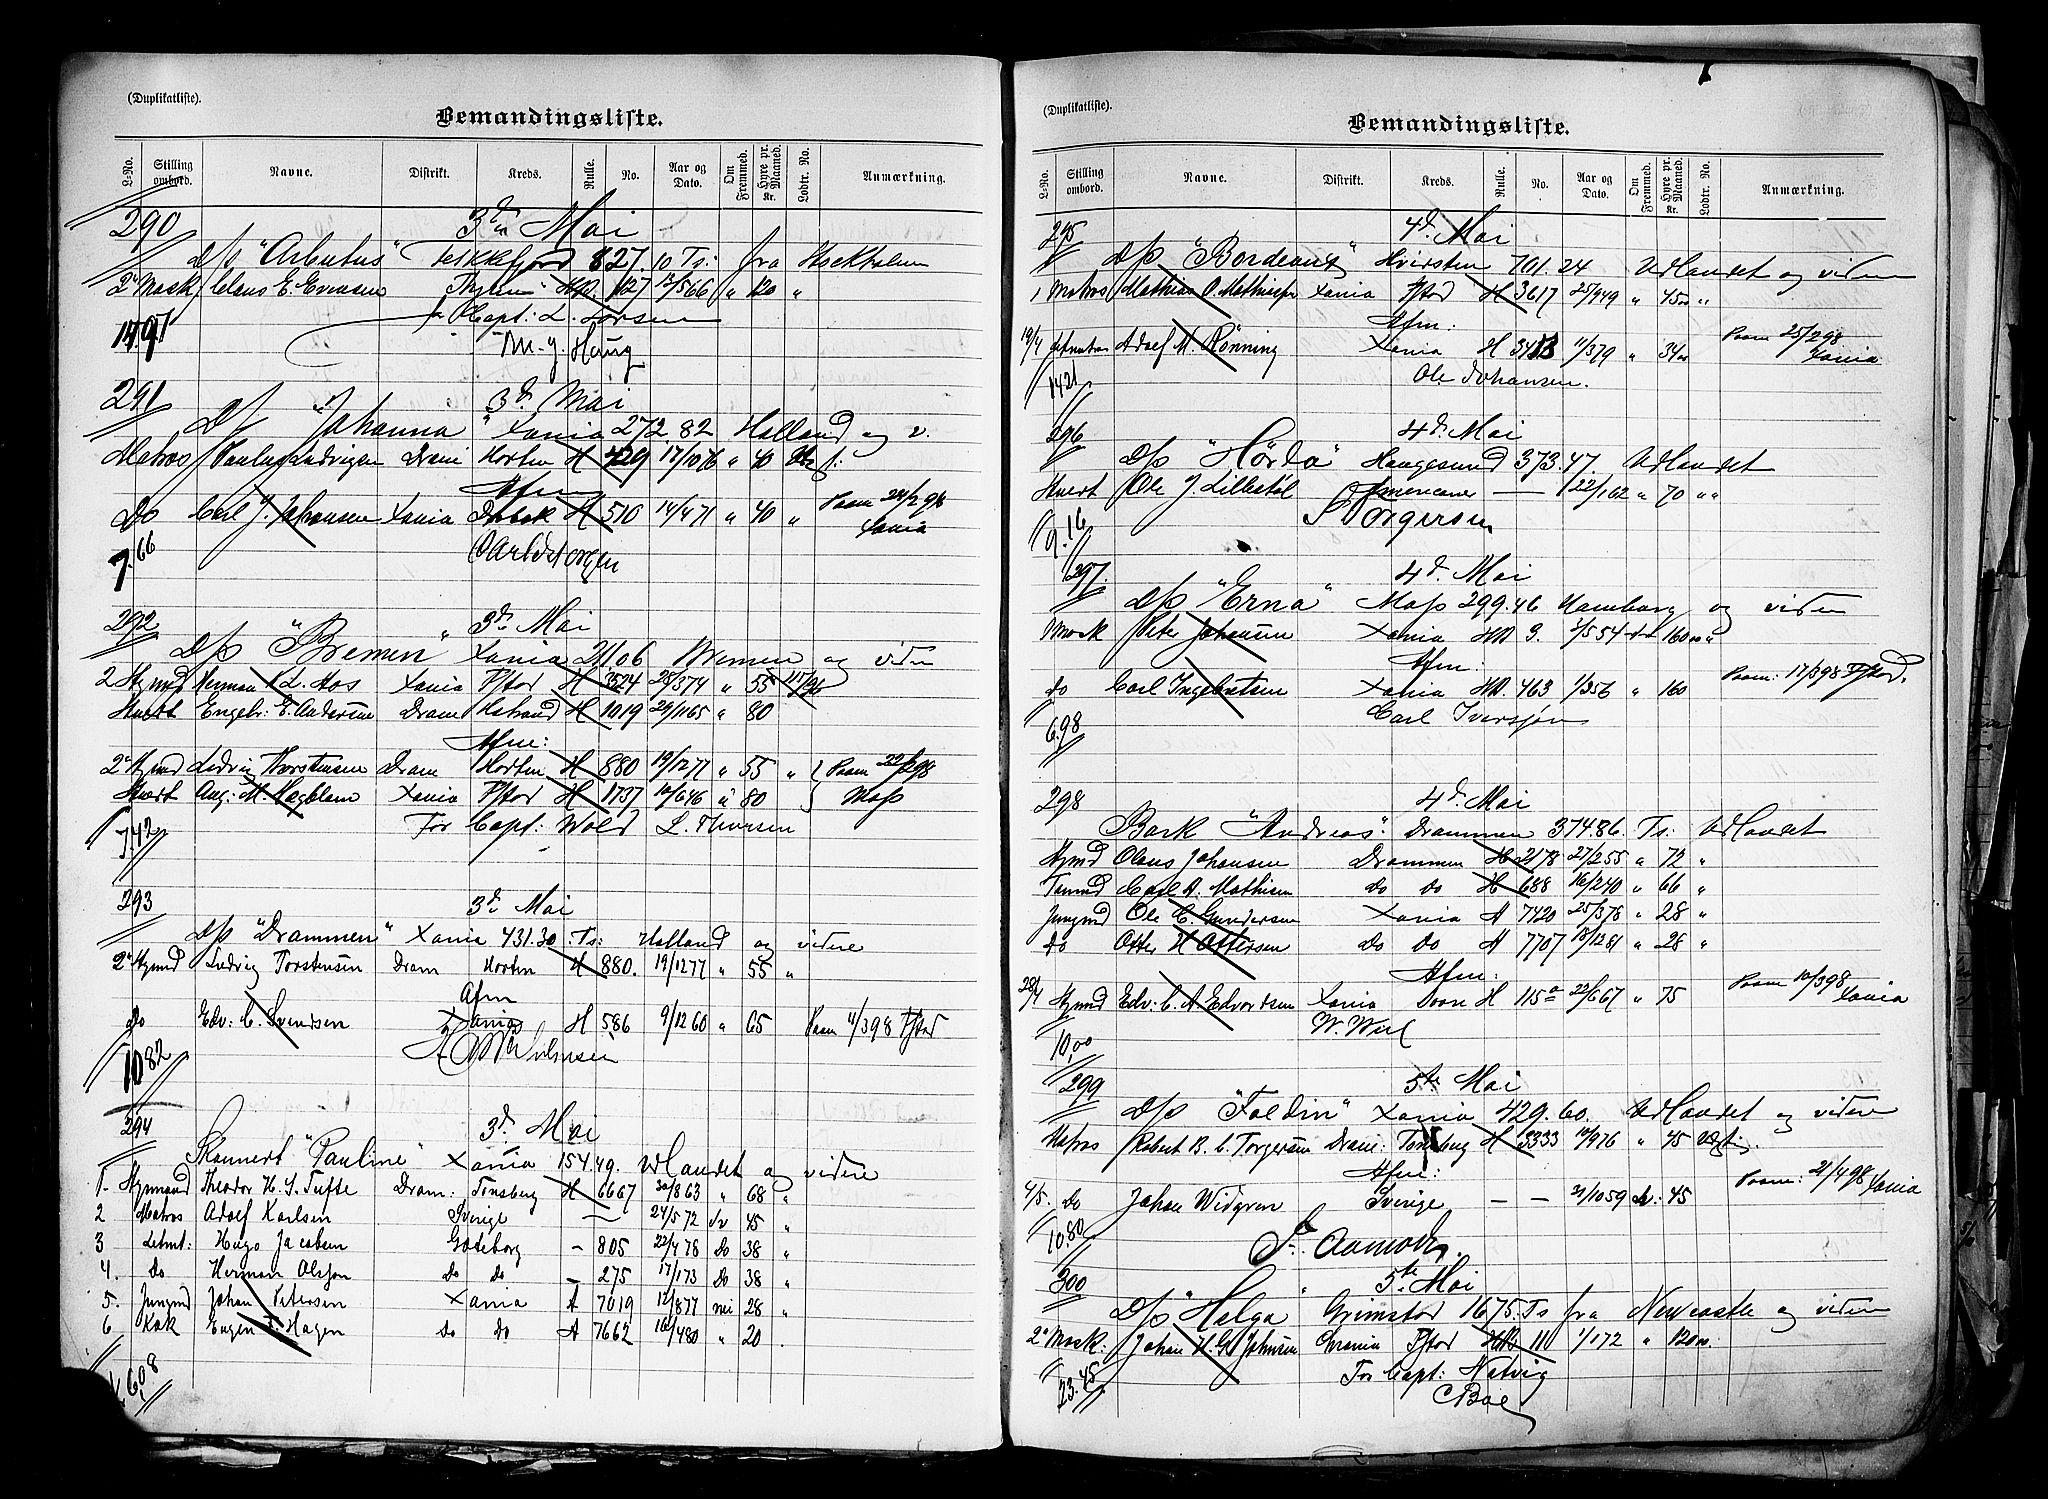 (Duplikatliste).
Bemandingsliste.
L-No. Stilling ombord. Navne. Distrikt. Kreds. Rulle. No. Aar og Dato. Om Fremmed. Hyre pr. Maaned. Kr. Lodtr. No. Anmærkning.
290 3die Mai
D/S "Arbutus" 827. 10 Ts: fra Stockholm
2den Mask Claus E. Evensen 127 12/5 66 " 120 "
Capt: L. Larsen
14.97
M. J. Haug
291 3d. Mai
D/S "Johanna" Xania 272.82 Holland og v.
Matros Ludvigsen Dram Horten H 429 17/10 76 " 40
Afm
Do Carl J. Johansen Xania Drøbak H 510 14/4 71 " 40 " Paam 24/2 98 Xania
7.66
292 3d. Mai
D/S "Bremen" Xania 21.06 Bremen og videre
2 Fyrmd Herman L. Aos Xania Pstad H 3524 28/3 74 " 55
Stuert Engebr: E. Andersen Dram Holmestrand H 1019 29/11 65 " 80
Afm:
2den Fyrmd Ludvig Thorstensen Dram Horten H 880 19/12 77 " 55 " Paam 22/2 98
Stuert Aug: M. Hagblom Xania Pstad H 1737 10/6 46 " 80 Moss
7.42 For Capt: Wold L. Thorsen
293 3d. Mai
D/S "Drammen" Xania 431.30 Ts: Holland og videre
2den Fyrmd Ludvig Torstensen Dram Horten H 880. 19/12 77 " 55 "
Afm
Do Edv: C. Svendsen Xania H 586 9/12 60 " 65 Paam 11/3 98 Pstad
10.82
294 3d. Mai
Skonnert "Pauline" Xania 154.49. Udlandet og videre
1. Styrmand Theodor H. S. Tufte Dram. Tønsberg H 6667 30/8 63 " 68 "
2 Matros Adolf Karlsen Sverige — 24/5 72 Ja 45 "
3 Letmt: Hugo Jacobsen Gøteborg — 805 22/4 78 Do 38 "
4. Do Herman Olsson Do Do — 275 17/1 73 Do 38 "
5. Jungmd Johan Petersen Xania A 7019 12/8 77 nei 28 "
6 Kok Eugen F. Hagen Do Do A 7662 16/4 80 " 20.
6.08
(Duplikatliste).
Bemandingsliste.
L-No. Stilling ombord. Navne. Distrikt. Kreds. Rulle. No. Aar og Dato. Om Fremmed. Hyre pr. Maaned. Kr. Lodtr. No. Anmærkning.
295 4d. Mai
D/S "Bordeaux" Hvidsten 701.24 Udlandet og videre
1 Matros Mathias O. Mathiesen Xania Pstad H 3617 25/9 49 " 45 00 "
Afm:
19/4 Letmatros Adolf M. Rønning Xania H 3413 11/3 79 " 34 00 Paam 25/2 98 Xania
14.21 Ole Johansen.
296 4d. Mai
D/S "Hørda" Haugesund 373.47. Udlandet
Stuert Ole J Lillestøl Amerikaner — 22/1 62 " 70 " "
9.16 S Torgersen
297. 4d. Mai
D/S "Erna" Moss 299.46 Hamborg og videre
1 Mask Peter Johansen Xania HA 9. 1/5 54 160 00 "
Afm:
Do Carl Ingebretsen Xania HA. 463 1/3 56 " 160 Paam: 17/3 98 Pstad.
6.98 Carl Iversen
298 4d. Mai
Bark "Andreas". Drammen 374.86. Ts: Udlandet
Styrmd Olaus Johansen Drammen H 2178 27/2 55 " 72 "
Tømmd Carl A. Mathisen Do Do H 688 16/2 40 " 66 "
Jungmd Ole C. Gundersen Xania A 7420 25/3 78 " 28 "
Do Otter H Ottersen Do Do A 7707 18/12 81 " 28 "
Afm:
28/4 Styrmd Edv: C. A Edvardsen Xania H 115a 22/6 67 " 75 Paam 10/3 98 Xania
W. Wiel
10,00
299 5te Mai
D/S "Faldin" Xania 429.60. Udlandet og videre
Matros Robert B. C. Torgersen Dram: Tønsberg H 3333 10/9 76 " 45
Afm:
4/5. Do Johan Widgren Sverige — — 21/10 59 Ja: 45 Paam: 21/4 98 Xania
10.80 F. Aamodt.
300 5te Mai
D/S "Helga" Grimstad 1675. Ts fra Newcastle og videre
2den Mask: Johan H. G. Johnsen Xrania Pstad HA 110 1/1 72 " 120 00.
For Capt: Natvig
23.45 C Boe